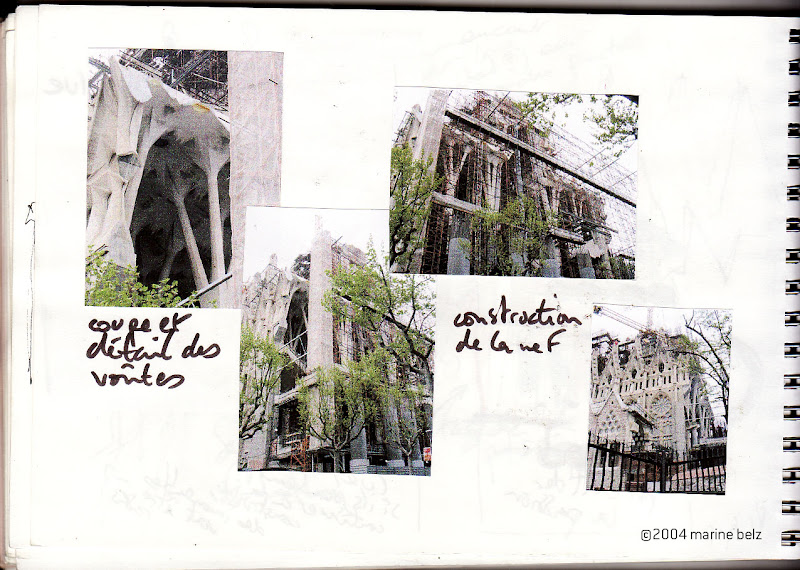 coupe et
détail des
voûtes
construction
de la nef
©2004 marine belz